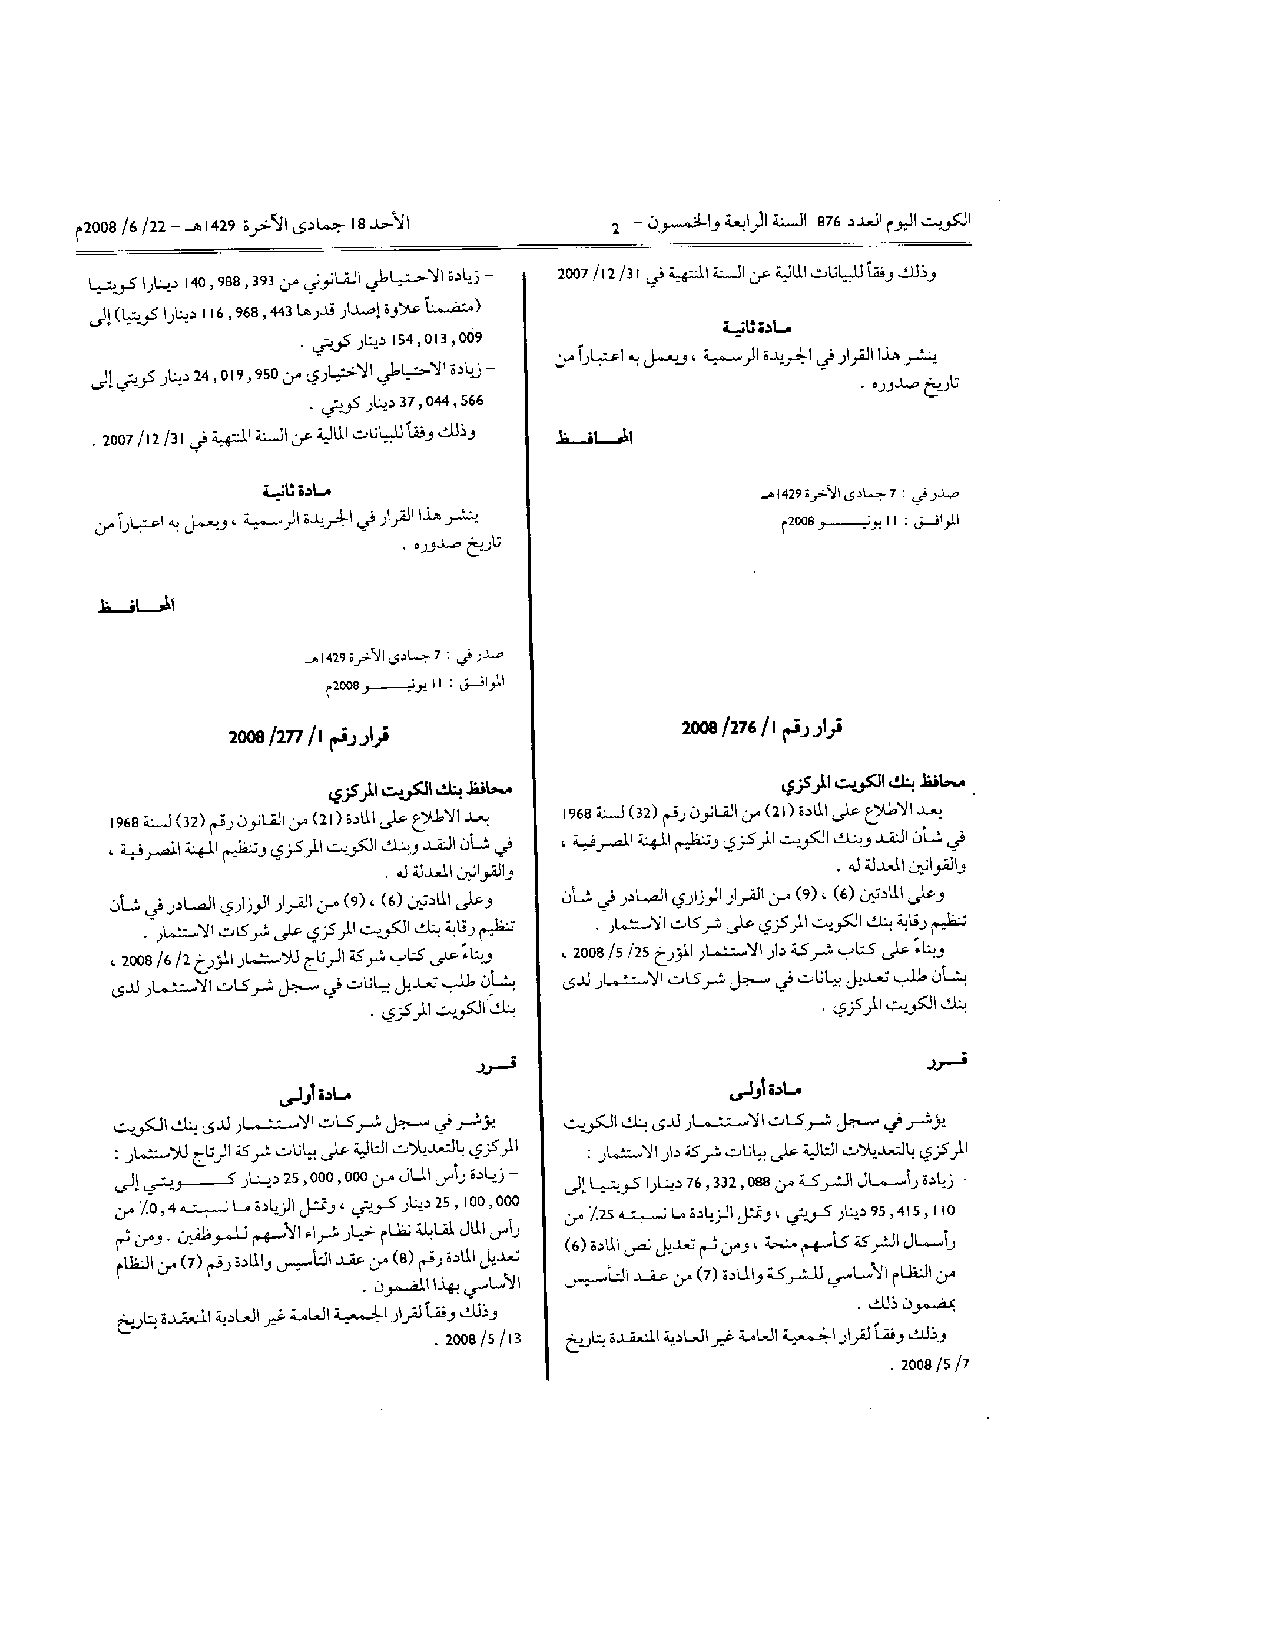 الكويت اليوم العدد 876 السنة الرابعة والخمسون - 2
الأحد 18 جمادى الآخرة 1429هـ - 22/ 6/ 2008م
وذلك وفقاً للبيانات المالية عن السنة المنتهية في 31/ 12/ 2007
مادة ثانية
ينشر هذا القرار في الجريدة الرسمية ، ويعمل به اعتباراً من
تاريخ صدوره .
المحافظ
صدر في : 7 جمادى الآخرة 1429هـ
الموافق : 11 يونيو 2008م
قرار رقم 1/ 276/ 2008
محافظ بنك الكويت المركزي
بعد الاطلاع على المادة (21) من القانون رقم (32) لسنة 1968
في شأن النقد وبنك الكويت المركزي وتنظيم المهنة المصرفية ،
والقوانين المعدلة له .
وعلى المادتين (6) ، (9) من القرار الوزاري الصادر في شأن
تنظيم رقابة بنك الكويت المركزي على شركات الاستثمار .
وبناءً على كتاب شركة دار الاستثمار المؤرخ 25/ 5/ 2008 ،
بشأن طلب تعديل بيانات في سجل شركات الاستثمار لدى
بنك الكويت المركزي .
قرر
مادة أولى
يؤشر في سجل شركات الاستثمار لدى بنك الكويت
المركزي بالتعديلات التالية على بيانات شركة دار الاستثمار :
- زيادة رأسمال الشركة من 76,332,088 دينارا كويتيا إلى
95,415,110 دينار كويتي ، وتمثل الزيادة ما نسبته 25٪ من
رأسمال الشركة كأسهم منحة ، ومن ثم تعديل نص المادة (6)
من النظام الأساسي للشركة والمادة (7) من عقد التأسيس
بمضمون ذلك .
وذلك وفقاً لقرار الجمعية العامة غير العادية المنعقدة بتاريخ
7/ 5/ 2008 .
- زيادة الاحتياطي القانوني من 140,988,393 دينارا كويتيا
(متضمناً علاوة إصدار قدرها 116,968,443 دينارا كويتيا) إلى
154,013,009 دينار كويتي .
- زيادة الاحتياطي الاختياري من 24,019,950 دينار كويتي إلى
37,044,566 دينار كويتي .
وذلك وفقاً للبيانات المالية عن السنة المنتهية في 31/ 12/ 2007 .
مادة ثانية
ينشر هذا القرار في الجريدة الرسمية ، ويعمل به اعتباراً من
تاريخ صدوره .
المحافظ
صدر في : 7 جمادى الآخرة 1429هـ
الموافق : 11 يونيو 2008م
قرار رقم 1/ 277/ 2008
محافظ بنك الكويت المركزي
بعد الاطلاع على المادة (21) من القانون رقم (32) لسنة 1968
في شأن النقد وبنك الكويت المركزي وتنظيم المهنة المصرفية ،
والقوانين المعدلة له .
وعلى المادتين (6) ، (9) من القرار الوزاري الصادر في شأن
تنظيم رقابة بنك الكويت المركزي على شركات الاستثمار .
وبناءً على كتاب شركة الرتاج للاستثمار المؤرخ 2/ 6/ 2008 ،
بشأن طلب تعديل بيانات في سجل شركات الاستثمار لدى
بنك الكويت المركزي .
قرر
مادة أولى
يؤشر في سجل شركات الاستثمار لدى بنك الكويت
المركزي بالتعديلات التالية على بيانات شركة الرتاج للاستثمار :
- زيادة رأس المال من 25,000,000 دينار كويتي إلى
25,100,000 دينار كويتي ، وتمثل الزيادة ما نسبته 0,4٪ من
رأس المال لمقابلة نظام خيار شراء الأسهم للموظفين . ومن ثم
تعديل المادة رقم (8) من عقد التأسيس والمادة رقم (7) من النظام
الأساسي بهذا المضمون .
وذلك وفقاً لقرار الجمعية العامة غير العادية المنعقدة بتاريخ
13/ 5/ 2008 .